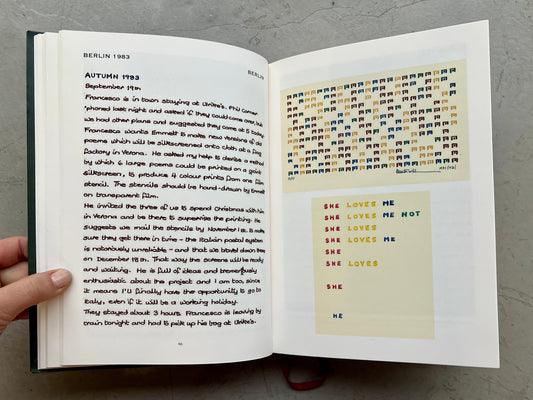 BERLIN 1983
BERLIN
AUTUMN 1983
September 19th
Francesco is in town staying at Ursite's. Phil Corner
'phoned last night and asked if they could come over, but
we had other plans and suggested they come at 5 today.
Francesco wants Emmett to make new versions of old
poems which will be silkscreened onto cloth at a
factory in Verona. He asked my help to devise a method
by which 6 large poems could be printed on a giant
silkscreen, to produce 4 colour prints from one film
stencil. The stencils should be hand-drawn by Emmett
on transparent film.
He invited the three of us to spend Christmas with him
in Verona and be there to supervise the printing. He
suggests we mail the stencils by November 18. to make
sure they get there in time – the Italian postal system
is notoriously unreliable – and that we travel down there
on December 18th. That way the screens will be ready
and waiting. He is full of ideas and tremendously
enthusiastic about the project and I am too, since
it means I'll finally have the opportunity to go to
Italy, even if it will be a working holiday.
They stayed about 3 hours. Francesco is leaving by
train tonight and had to pick up his bag at
SHE LOVES ME
SHE LOVES ME NOT
SHE LOVES
SHE LOVES ME
SHE
SHE LOVES
SHE
HE